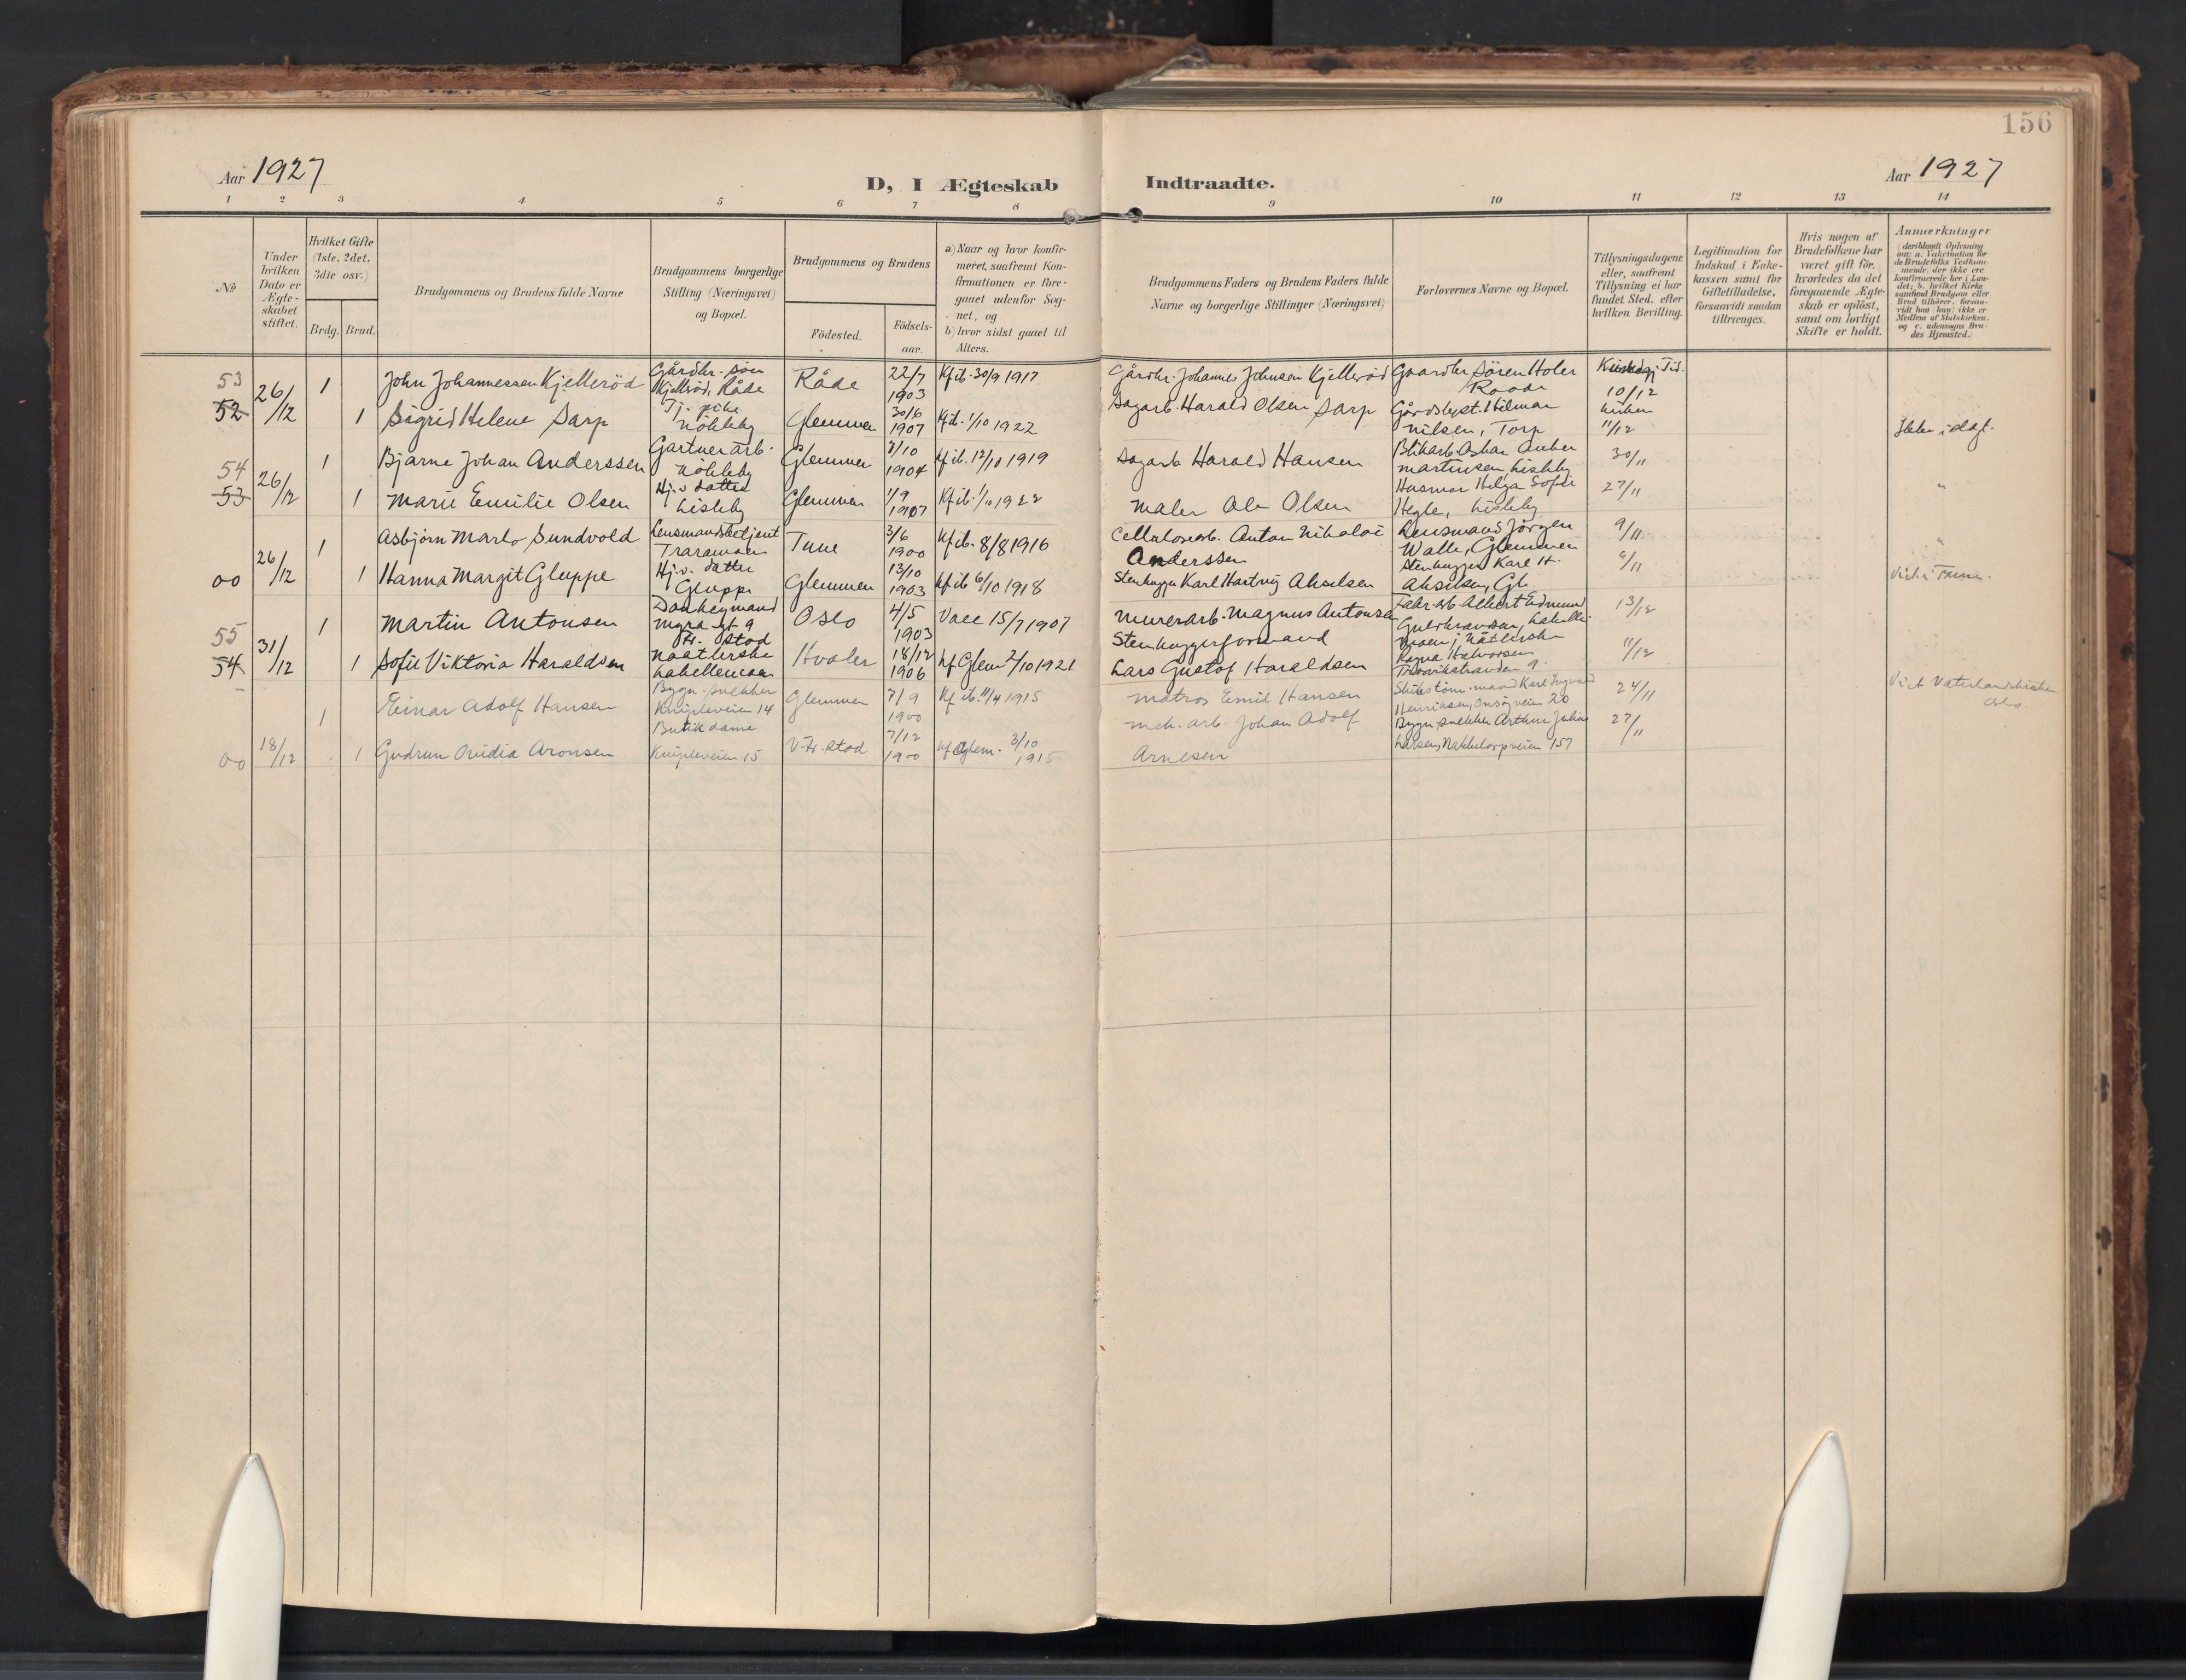 156
Aar 1927
D, I Ægteskab
Indtraadte.
Aar 1927
1 2 3 4 5 6 7 8 9 10 11 12 13 14
No
Under hvilken Dato er Ægteskabet stiftet.
Hvilket Gifte (1ste, 2det, 3die osv.)
Brdg. Brud.
Brudgommens og Brudens fulde Navne
Brudgommens borgerlige Stilling (Næringsvei) og Bopæl.
Brudgommens og Brudens
Födested.
Födselsaar.
a) Naar og hvor konfirmeret, saafremt Konfirmationen er foregaaet udenfor Sognet, og
b) hvor sidst gaaet til Alters.
Brudgommens Faders og Brudens Faders fulde Navne og borgerlige Stillinger (Næringsvei)
Forlovernes Navne og Bopæl.
Tillysningsdagene eller, saafremt Tillysning ei har fundet Sted, efter hvilken Bevilling.
Legitimation for Indskud i Enkekassen samt for Giftetilladelse, forsaavidt saadan tiltrænges.
Hvis nogen af Brudefolkene har været gift för, hvorledes da det foregaaende Ægteskab er oplöst, samt om lovligt Skifte er holdt.
Anmærkninger
(deriblandt Oplysning om: a. Vakcination for de Brudefolks Vedkommende, der ikke ere konfirmerede her i Landet; b. hvilket Kirkesamfund Brudgom eller Brud tilhörer, forsaavidt han (hun) ikke er Medlem af Statskirken, og c. udensogns Brudes Hjemsted.)
53 52 26/12 1 John Johannessen Kjelleröd Gårdbr. sön Kjelleröd, Råde Råde 22/7 1903 Kf ib. 30/9 1917 Gårdbr. Johannes Johnsen Kjelleröd Gaardbr Sören Holer Raade 10/12
1 Sigrid Helene Sarp Tj. pike Glemmen 30/6 1907 Kf ib. 1/10 1922 Sagarb. Harald Olsen Sarp Hilmar Nilsen, Torp 11/12
54 53 26/12 1 Bjarne Johan Anderssen Gartnerarb. Glemmen 1904 Kf ib. 12/10 1919 Sagarb Harald Hansen Martinsen Lisleby 30/11
1 Marie Emilie Olsen Hj. v. datter Lisleby Glemmen 1/9 1907 Kf ib. 1/10 1922 Maler Ole Olsen Husmor Helga Sofie Hegle, Lisleby 27/11 "
00 26/12 1 Asbjörn Marlo Sundvold Lensmandsbetjent Traraveien Tune 3/6 1900 Kf ib. 8/8 1916 Cellulosearb. Anton Nikolai Anderssen Lensmand Jörgen Walle, Glemmen 9/11 "
1 Hanna Margit Gluppe Hj. v. datter Gluppe Glemmen 13/10 1903 Kf ib 6/10 1918 Stenhugger Karl Hartvig Akselsen Stenhugger Karl H. Akselsen, Gl. Viet i Tune.
55 54 31/12 1 Martin Antonsen Donkeymand Fr. stad Oslo 4/5 1903 15/7 1907 Murerarb. Magnus Antonsen Fabr. arb. Albert Edmund 13/12
1 Sofie Viktoria Haraldsen Naatlerske Hvaler 18/12 1906 kf Glem 2/10 1921 Stenhuggerformand Lars Gustof Haraldsen Ragna Halvorsen 11/12
00 18/12 1 Einar Adolf Hansen Bygn. snekker Knipleveien 14 Glemmen 7/9 1900 Kf ib. 11/4 1915 Matros Emil Hansen Karl Ingvard Henriksen, Onsöyveien 20 24/11 Viet Vaterlandskirken Oslo.
1 Gudrun Ovidia Aronsen Butikdame Knipleveien 15 V. Fr. stad 7/12 1900 kf Glem. 3/10 1915 Mek. arb. Johan Adolf Arnesen Bygn. snekker Arthur Julius Larsen, Nabbetorpveien 157 27/11